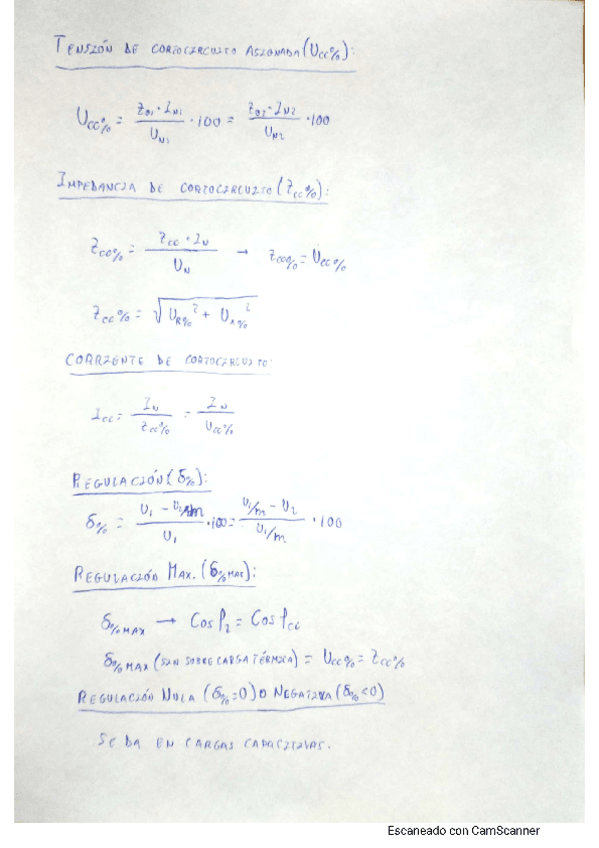 TENSIÓN DE CORTOCIRCUITO ASIGNADA (Ucc%):
Ucc% = Z01 · IN1 / UN1 · 100 = Z02 · IN2 / UN2 · 100
IMPEDANCIA DE CORTOCIRCUITO (Zcc%):
Zcc% = Zcc · IN / UN → Zcc% = Ucc%
Zcc% = √(UR%² + UX%²)
CORRIENTE DE CORTOCIRCUITO:
Icc = IN / Zcc% = IN / Ucc%
REGULACIÓN (δ%):
δ% = U1 - U2 m / U1 · 100 = U1/m - U2 / U1/m · 100
REGULACIÓN MAX. (δ% MAX):
δ% MAX → Cos φ2 = Cos φcc
δ% MAX (SIN SOBRECARGA TÉRMICA) = Ucc% = Zcc%
REGULACIÓN NULA (δ% = 0) O NEGATIVA (δ% < 0)
SE DA EN CARGAS CAPACITIVAS.
Escaneado con CamScanner